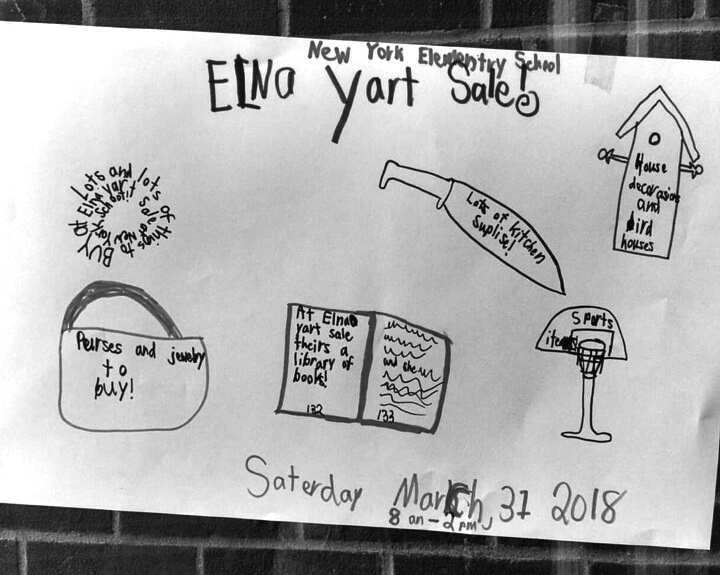 New York Elementry School
Elna Yart Sale!
Lots and lots of things to BUY at
Elna Yart sale of New York school!
Lots of kitchen
suplise!
House
decorasions
and
bird
houses
Peurses and jewelry
to
buy!
At Elna
yart sale
theirs a
library of
books!
132
and she
133
Sports
items
Saterday March, 31 2018
8 am - 2 pm